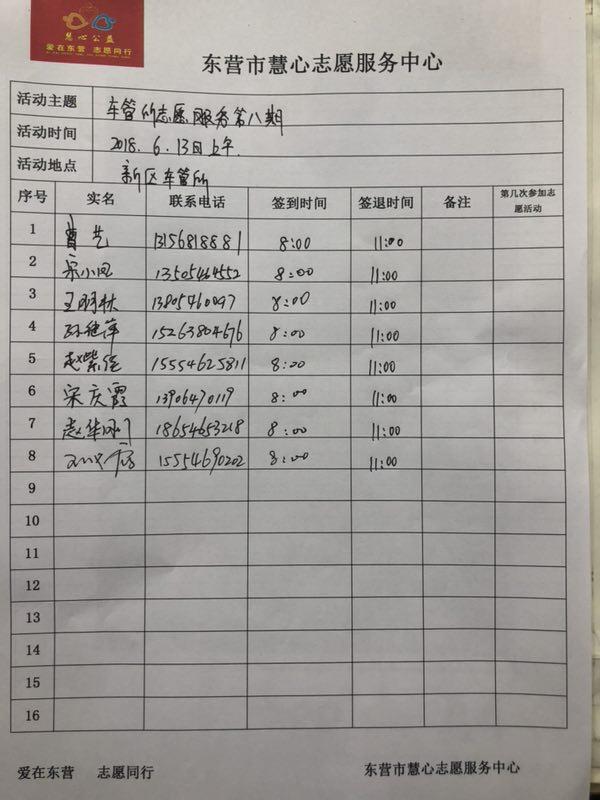 慧心公益
爱在东营 志愿同行
东营市慧心志愿服务中心
活动主题 车管所志愿服务第八期
活动时间 2018.6.13日上午.
活动地点 新区车管所
序号 实名 联系电话 签到时间 签退时间 备注 第几次参加志愿活动
1 曹艺 13156818881 8:00 11:00
2 宋小凤 13505464552 8:00 11:00
3 王明秋 13805460097 8:00 11:00
4 孙继萍 15263804676 8:00 11:00
5 赵紫 15554625811 8:20 11:00
6 宋庆霞 13906470119 8:00 11:00
7 赵华刚 18654653218 8:00 11:00
8 15554690202 8:00 11:00
9
10
11
12
13
14
15
16
爱在东营 志愿同行 东营市慧心志愿服务中心